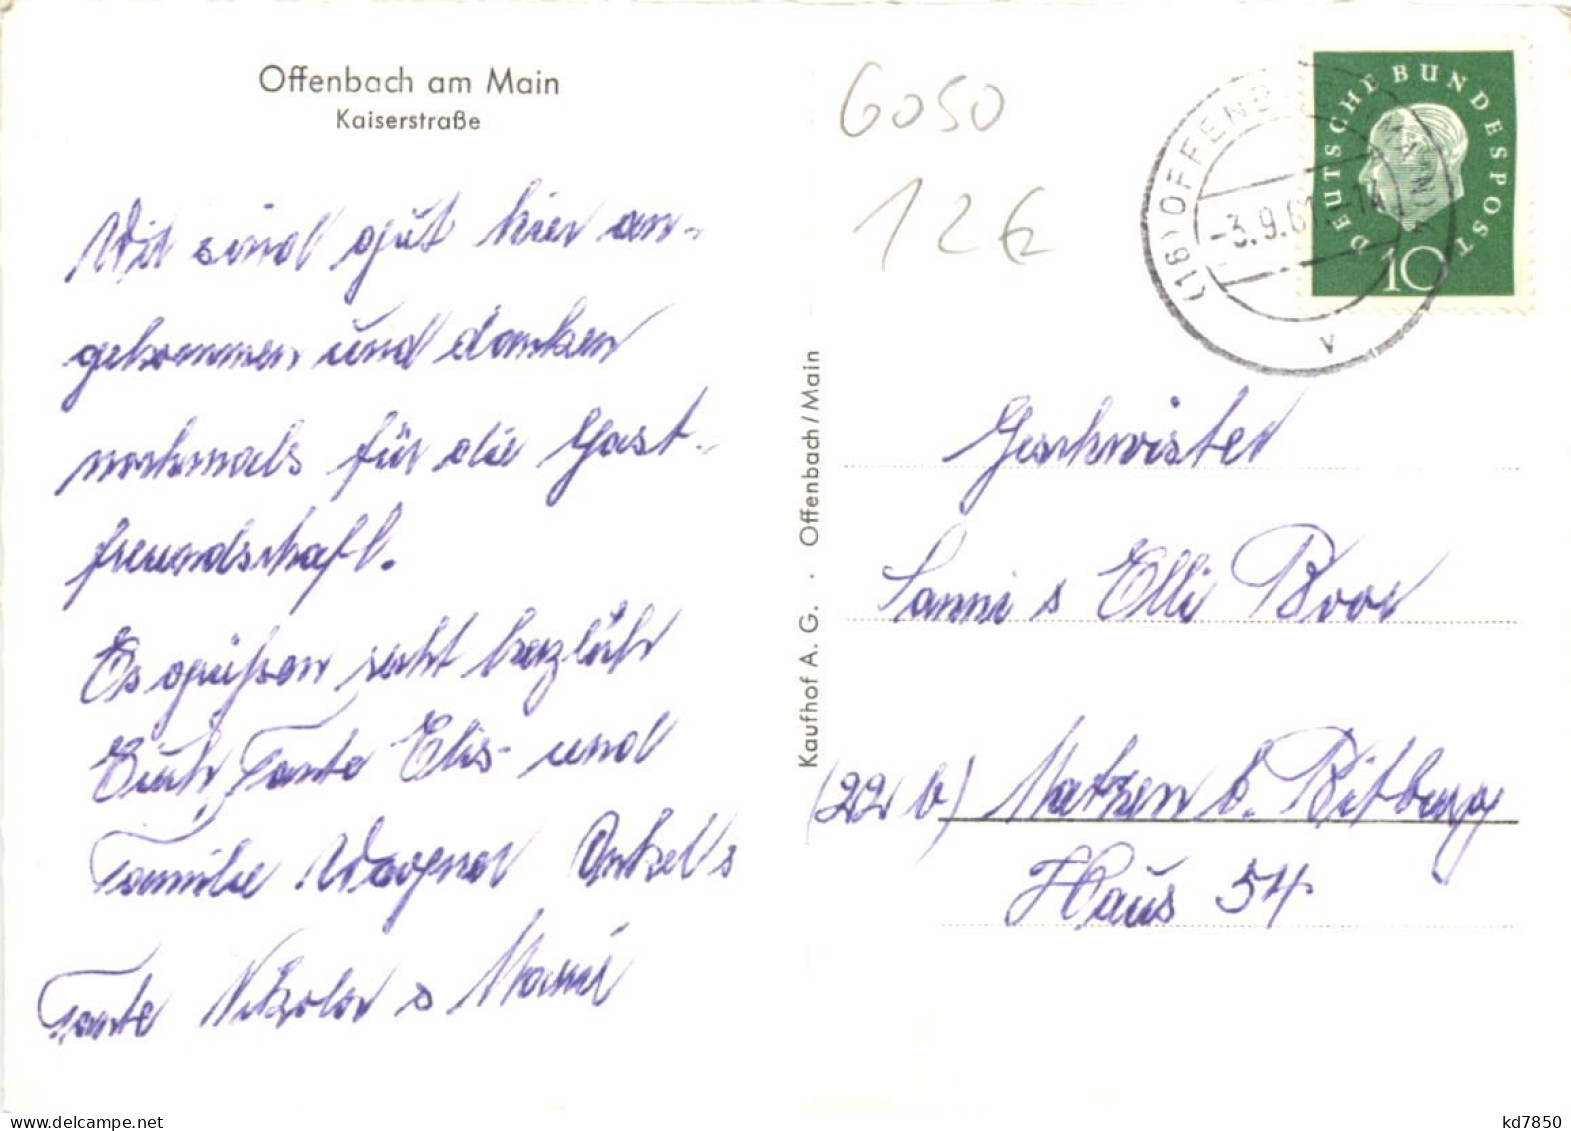 Offenbach am Main
Kaiserstraße
Wir sind gut hier an-
gekommen und danken
nochmals für die Gast-
freundschaft.
Es grüßen recht herzlich
Euch Tante Elis und
Familie Wagner Onkel s
Tante Nikolor s Mani
Kaufhof A. G. · Offenbach/Main
6050
12€
(16) OFFENB MAIN
-3.9.61.-14
v
DEUTSCHE BUNDESPOST
10
Geschwister
Sanni s Elli Boor
(22 b) Matzen b. Bitburg
Haus 54
www.delcampe.net
kd7850